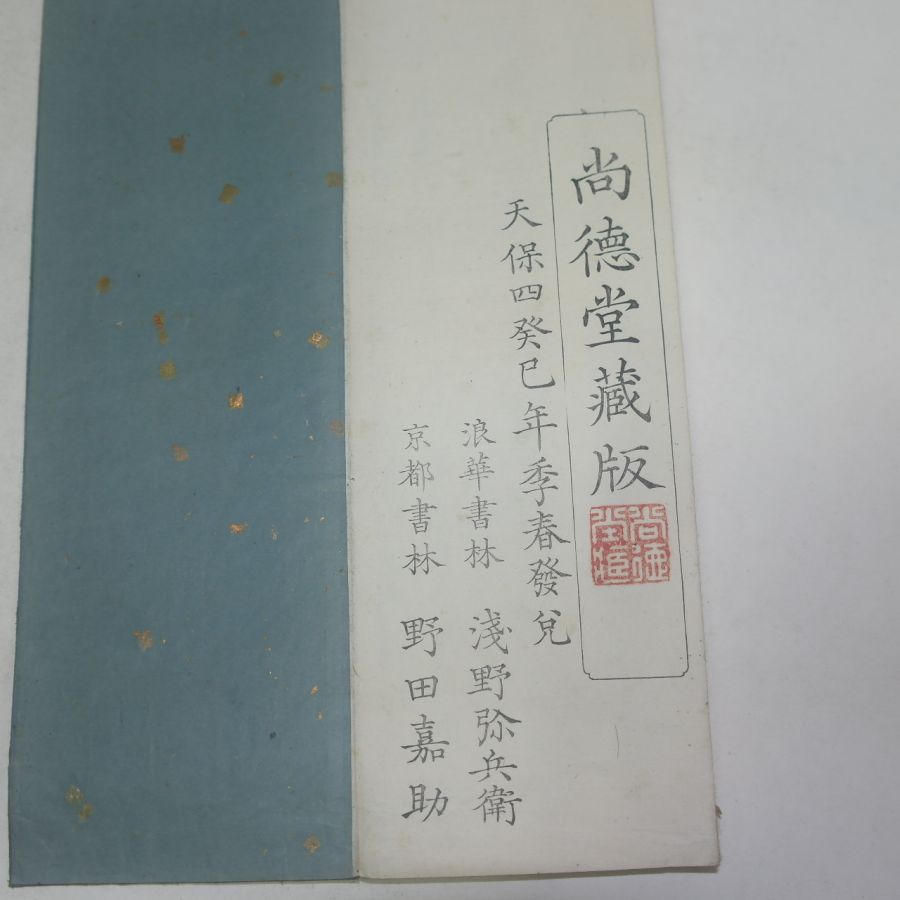 尚德堂藏版
天保四癸巳年季春發兌
浪華書林 淺野弥兵衛
京都書林 野田嘉助